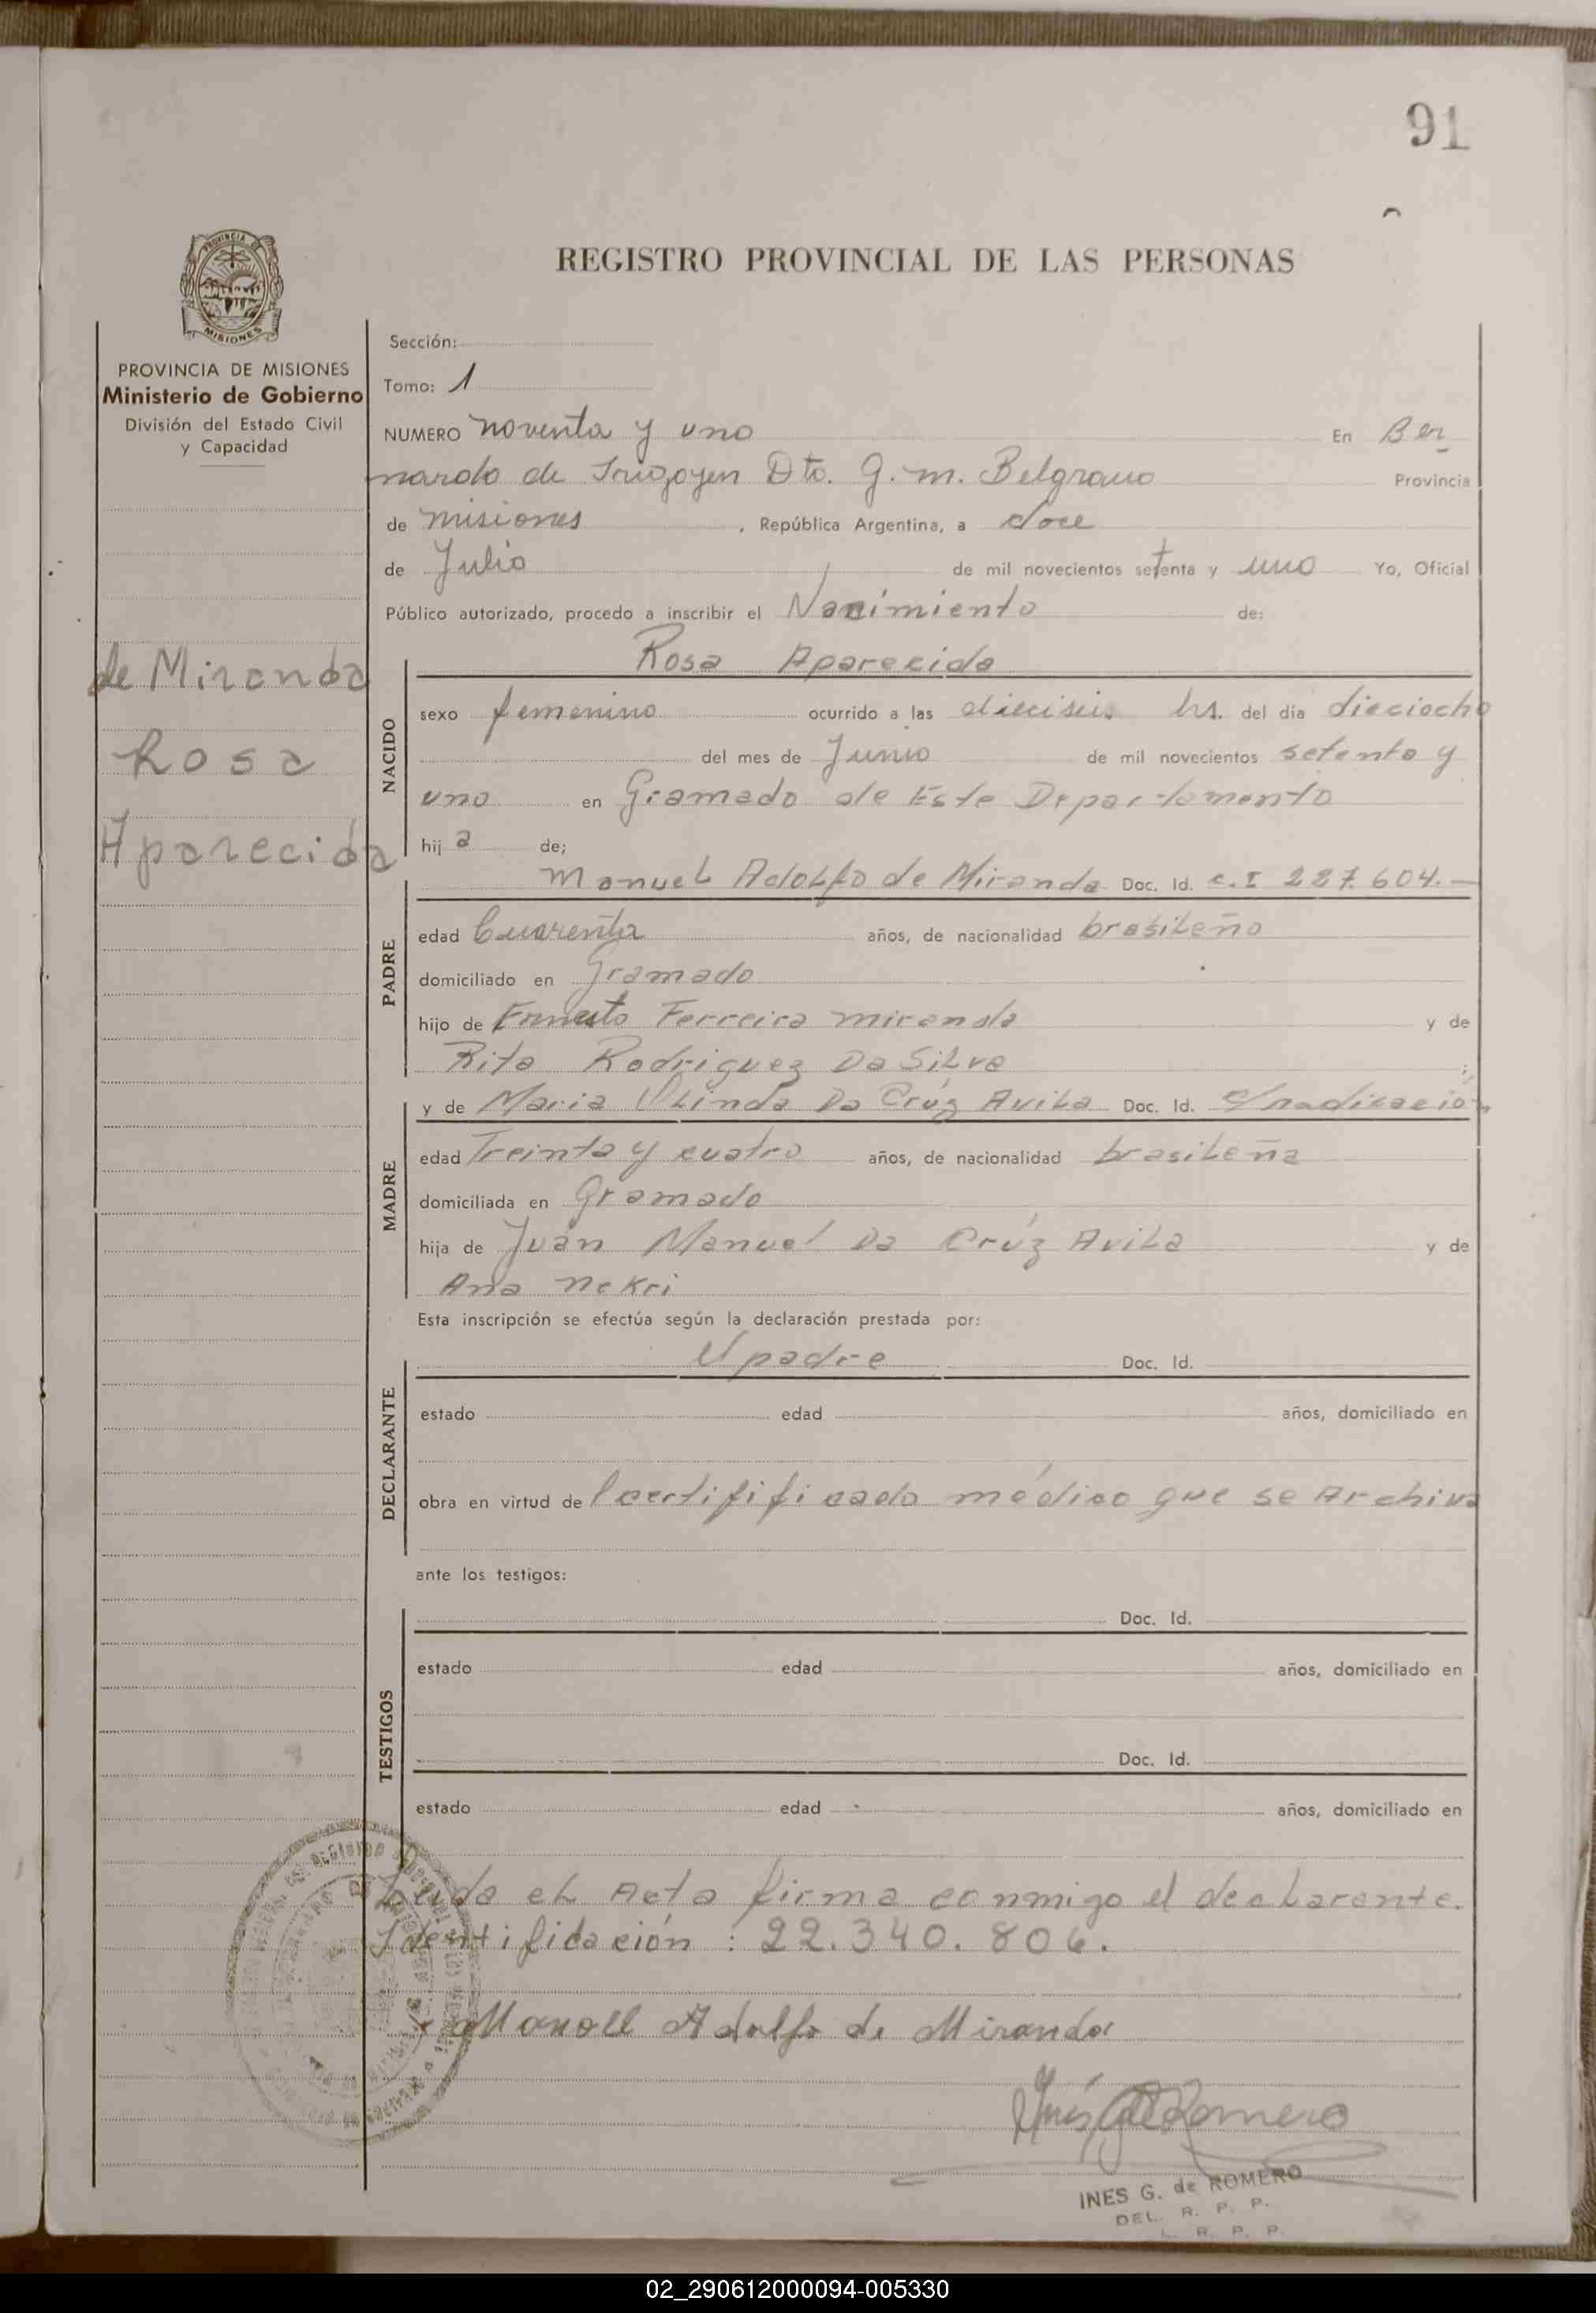 91
REGISTRO PROVINCIAL DE LAS PERSONAS
PROVINCIA DE
MISIONES
PROVINCIA DE MISIONES
Ministerio de Gobierno
División del Estado Civil
y Capacidad
de Miranda
Rosa
Aparecida
Sección:
Tomo: 1
NUMERO noventa y uno En Ber
nardo de Irigoyen Dto. G. M. Belgrano Provincia
de misiones , República Argentina, a doce
de Julio de mil novecientos setenta y uno Yo, Oficial
Público autorizado, procedo a inscribir el Nacimiento de:
Rosa Aparecida
NACIDO
sexo femenino ocurrido a las dieciseis hs. del día dieciocho
del mes de Junio de mil novecientos setenta y
uno en Gramado de Este Departamento
hij a de;
Manuel Adolfo de Miranda Doc. Id. c.I 227.604.—
PADRE
edad Cuarenta años, de nacionalidad brasileño
domiciliado en Gramado
hijo de Ernesto Ferreira Miranda y de
Rita Rodriguez Da Silva ;
y de Maria Olinda Da Crúz Avila Doc. Id. c/radicación
MADRE
edad Treinta y cuatro años, de nacionalidad brasileña
domiciliada en Gramado
hija de Juán Manuel Da Crúz Avila y de
Ana Nekri
Esta inscripción se efectúa según la declaración prestada por:
El padre Doc. Id.
DECLARANTE
estado edad años, domiciliado en
obra en virtud de certifificado médico que se Archiva
ante los testigos:
Doc. Id.
TESTIGOS
estado edad años, domiciliado en
Doc. Id.
estado edad años, domiciliado en
Leida el Acta firma conmigo el declarante.
Identificación : 22.340.806.
Manoel Adolfo de Miranda
Inés G de Romero
INES G. de ROMERO
DEL. R. P. P.
R. P. P.
02_290612000094-005330